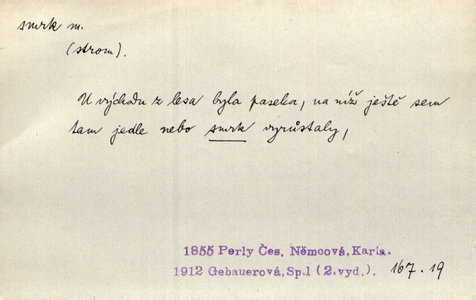 smrk m.
(strom).
U východu z lesa byla paseka, na níž ještě sem
tam jedle nebo smrk vyrůstaly,
1855 Perly Čes. Němcová, Karla.
1912 Gebauerová, Sp.1 (2.vyd.). 167.19